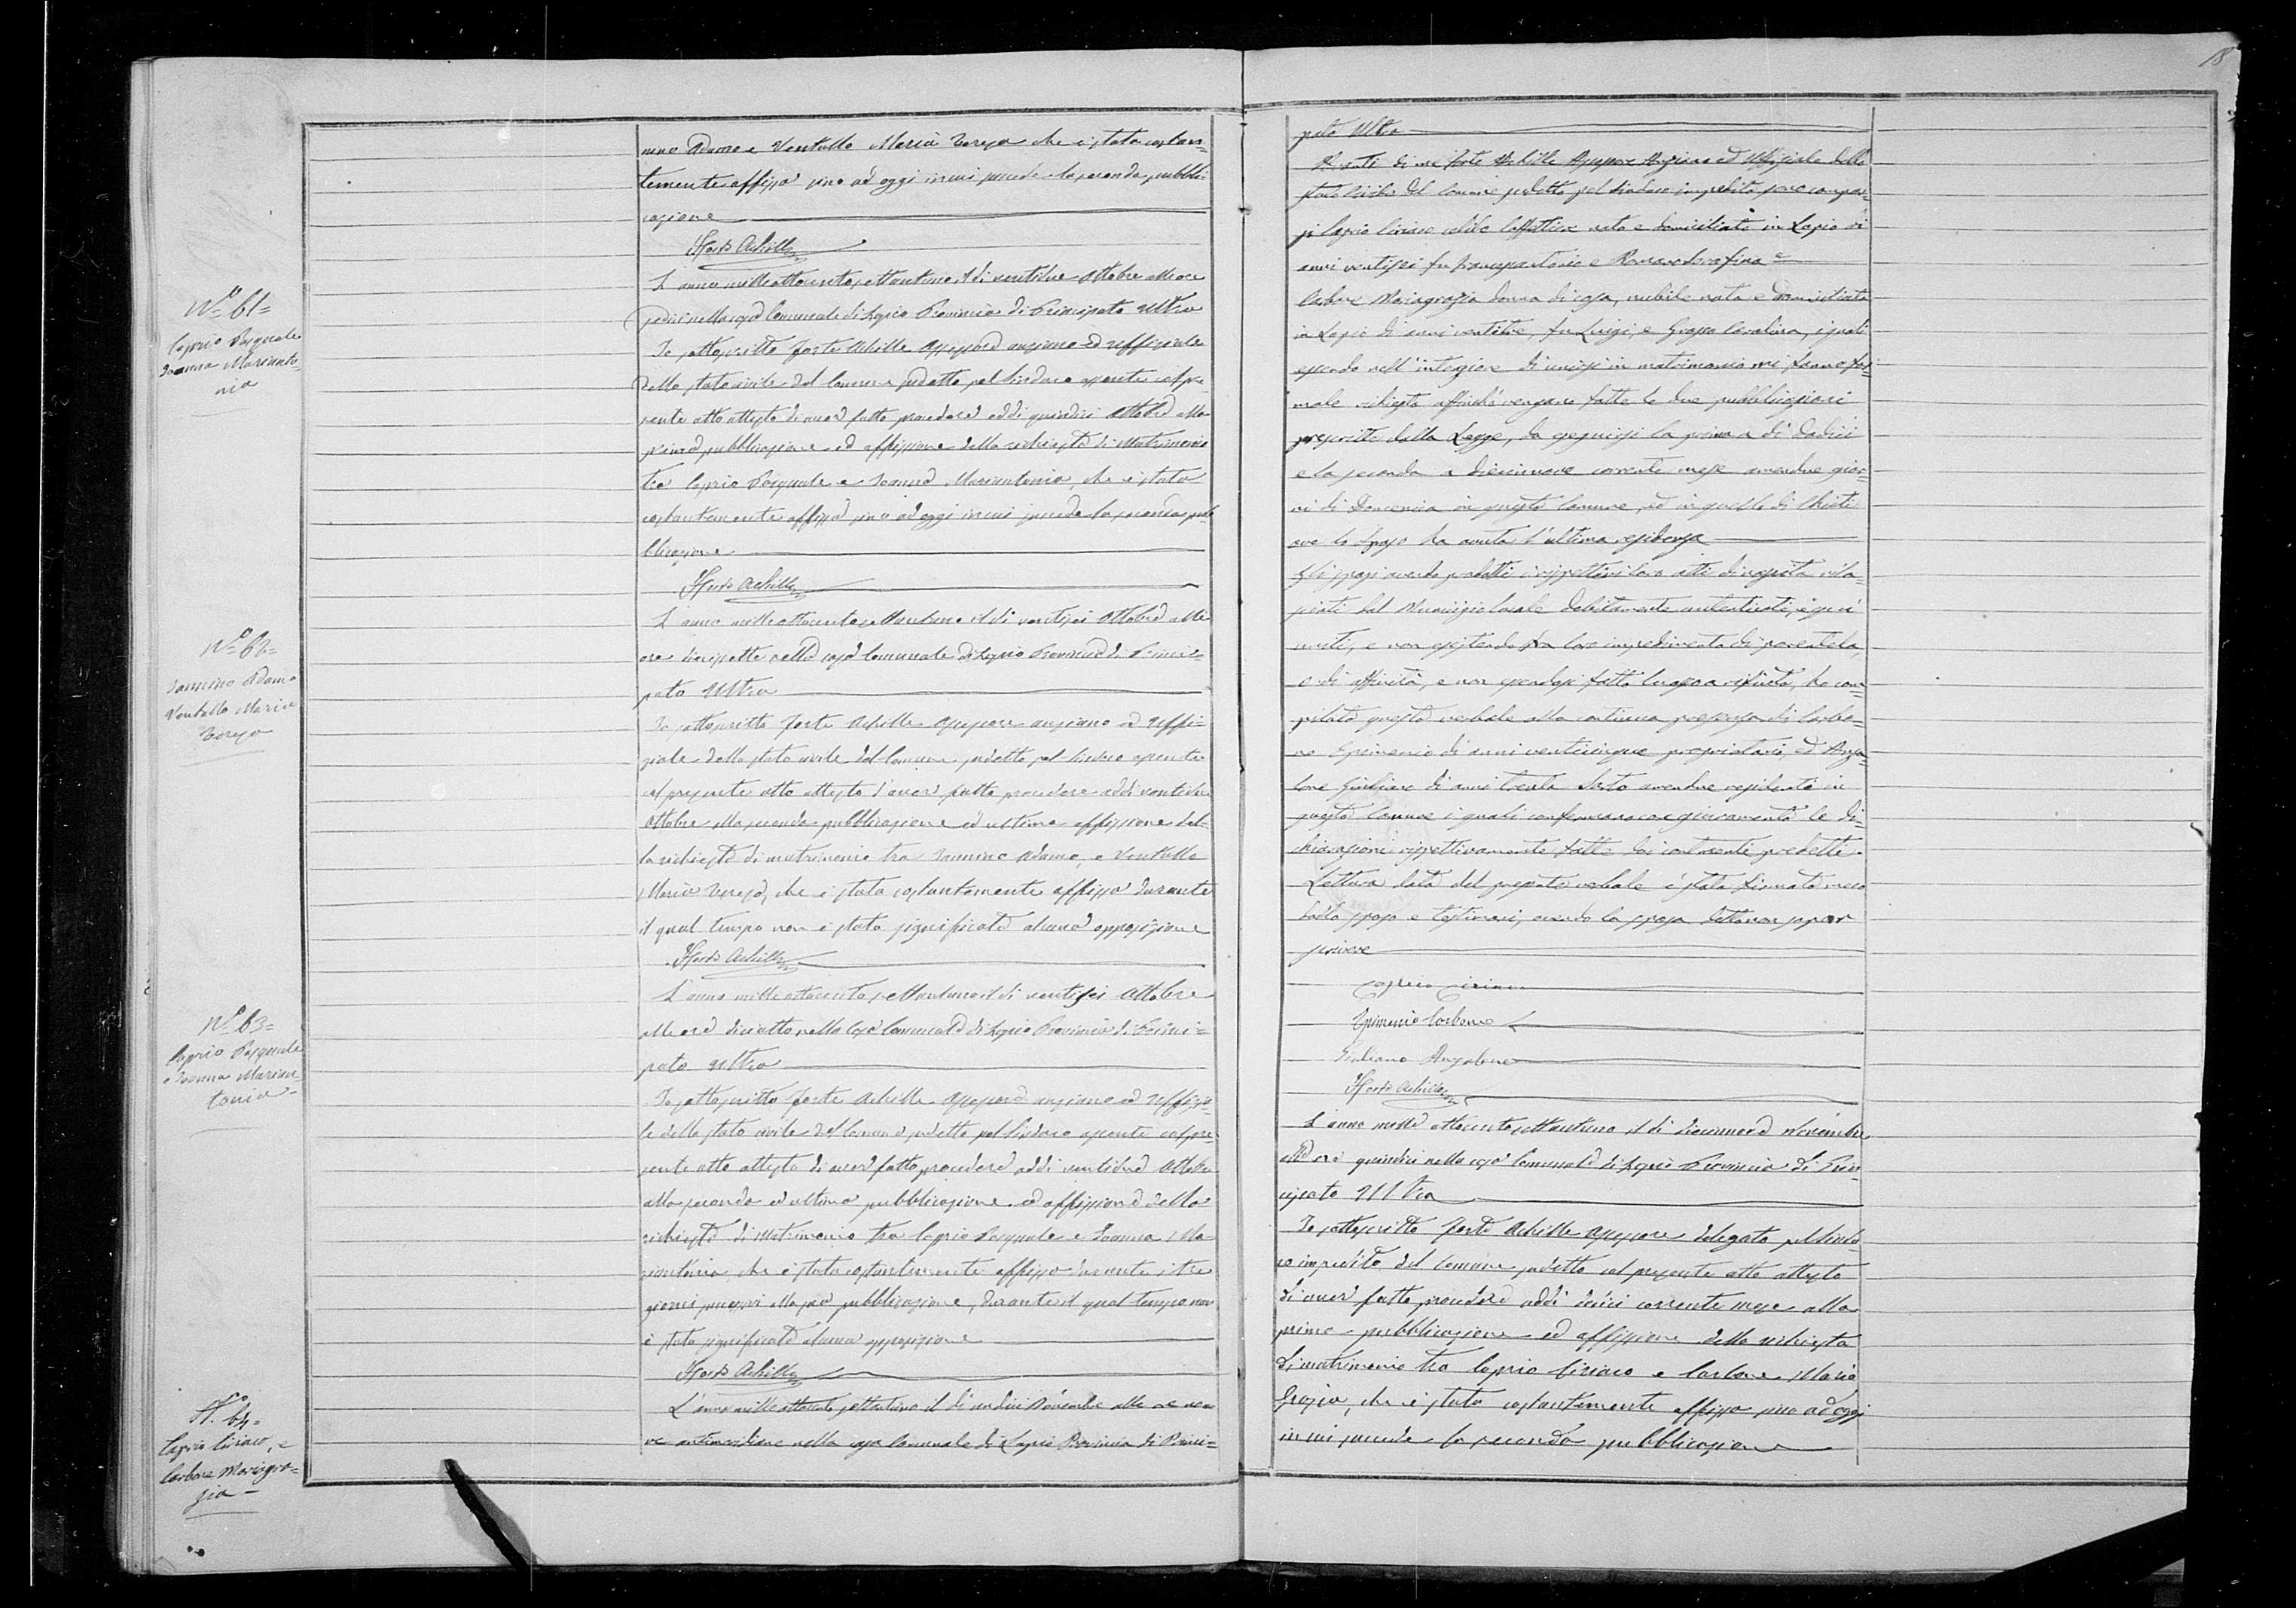 18
nino Adamo e Ventullo Maria Teresa che è stata costan=
temente affissa sino ad oggi in cui procede la seconda pubbli=
cazione
Forte Achille
N.° 61=
Caprio Pasquale
Ioanna Marianto=
nia
L'anno mille ottocento settantuno il dì ventidue Ottobre alle ore
sedici nella casa Comunale di Lapio Provincia di Principato Ultra
Io sottoscritto Forte Achille Assessore anziano ed uffiziale
dello stato civile del Comune sudetto pel Sindaco assente col pre
sente atto attesto di aver fatto procedere addì quindici Ottobre alla
prima pubblicazione ed affissione della richiesta di Matrimonio
tra Caprio Pasquale e Ioanna Mariantonia, che è stata
costantemente affissa sino ad oggi in cui procede la seconda pub
blicazione
Forte Achille
N.° 62=
Iannino Adamo
Ventullo Maria
Teresa
L'anno mille ottocento settantuno il dì ventisei Ottobre alle
ore diciasette nella casa Comunale di Lapio Provincia di Princi=
pato Ultra
Io sottoscritto Forte Achille Assessore anziano ed uffi=
ziale dello stato civile del Comune sudetto pel Sindaco assente
col presente atto attesto d'aver fatto procedere addì ventidue
Ottobre alla seconda pubblicazione ed ultima affissione del=
la richiesta di matrimonio tra Iannino Adamo, e Ventullo
Maria Teresa, che è stata costantemente affissa durante
il qual tempo non è stata significata alcuna opposizione
Forte Achille
N.° 63=
Caprio Pasquale
e Ioanna Marian=
tonia
L'anno mille ottocento settantuno il dì ventisei Ottobre
alle ore diciotto nella Casa Comunale di Lapio Provincia di Princi=
pato Ultra
Io sottoscritto Forte Achille Assessore anziano ed Uffizia=
le dello stato civile del Comune sudetto pel Sindaco assente col pre=
sente atto attesto di aver fatto procedere addì ventidue Ottobre
alla seconda ed ultima pubblicazione ed affissione della
richiesta di Matrimonio tra Caprio Pasquale e Ioanna Ma
riantonia che è stata costantemente affissa durante i tre
giorni successivi alla pubblicazione, durante il qual tempo non
è stata significata alcuna opposizione
Forte Achille
N.° 64=
Caprio Ciriaco, e
Carbone Mariagra=
zia
L'anno mille ottocento settantuno il dì undici Novembre alle ore no=
ve antimeridiane nella casa Comunale di Lapio Provincia di Princi=
pato Ultra
Avanti di me Forte Achille Assessore Anziano ed Uffiziale dello
stato Civile del Comune sudetto pel Sindaco impedito sono compar=
si Caprio Ciriaco celibe nato e domiciliato in Lapio di
anni ventisei fu Francescantonio e Romano Serafina e
Carbone Mariagrazia donna di casa, nubile nata e domiciliata
in Lapio di anni ventitre, fu Luigi, e Grasso Carolina, i quali
essendo nell'intenzione di unirsi in matrimonio mi fanno for=
male richiesta affinchè vengano fatte le due pubblicazioni
prescritte dalla Legge, da eseguirsi la prima a dì dodici
e la seconda a diecinnove corrente mese amendue gior=
ni di Domenica in questo Comune, ed in quello di Chieti
ove lo Sposo ha avuta l'ultima residenza
Gli sposi avendo prodotti i rispettivi loro atti di nascita rila=
sciati dal Municipio locale debitamente autenticati, e qui
uniti, e non esistendo fra loro impedimento di parentela,
o di affinità, e non essendosi fatto luogo a rifiuto, ho com=
pilato questo verbale alla continua presenza di Carbo=
ne Epimenio di anni venticinque proprietario, ed Anza=
lone Giuliano di anni trenta Sarto amendue residenti in
questo Comune i quali confermano con giuramento le di=
chiarazioni rispettivamente fatte dai contraenti predetti.
Lettura data del presente verbale è stato firmato meco
dallo sposo e testimoni, avendo la sposa detto non saper
scrivere
Caprio Ciriaco
Epimenio Carbone
Giuliano Anzalone
Forte Achille
L'anno mille ottocento settantuno il dì diecinnove Novembre
alle ore quindici nella casa Comunale di Lapio Provincia di Prin=
cipato Ultra
Io sottoscritto Forte Achille Assessore delegato pel Sinda=
co impedito del Comune sudetto col presente atto attesto
di aver fatto procedere addì dodici corrente mese alla
prima pubblicazione ed affissione della richiesta
di matrimonio tra Caprio Ciriaco e Carbone Maria
Grazia, che è stata costantemente affissa sino ad oggi
in cui procede la seconda pubblicazione